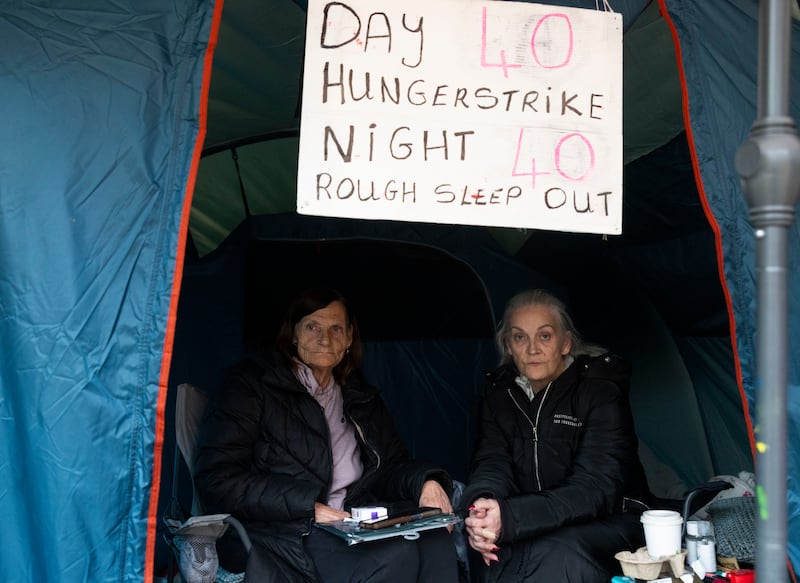 DAY 40
HUNGERSTRIKE
NIGHT 40
ROUGH SLEEP OUT